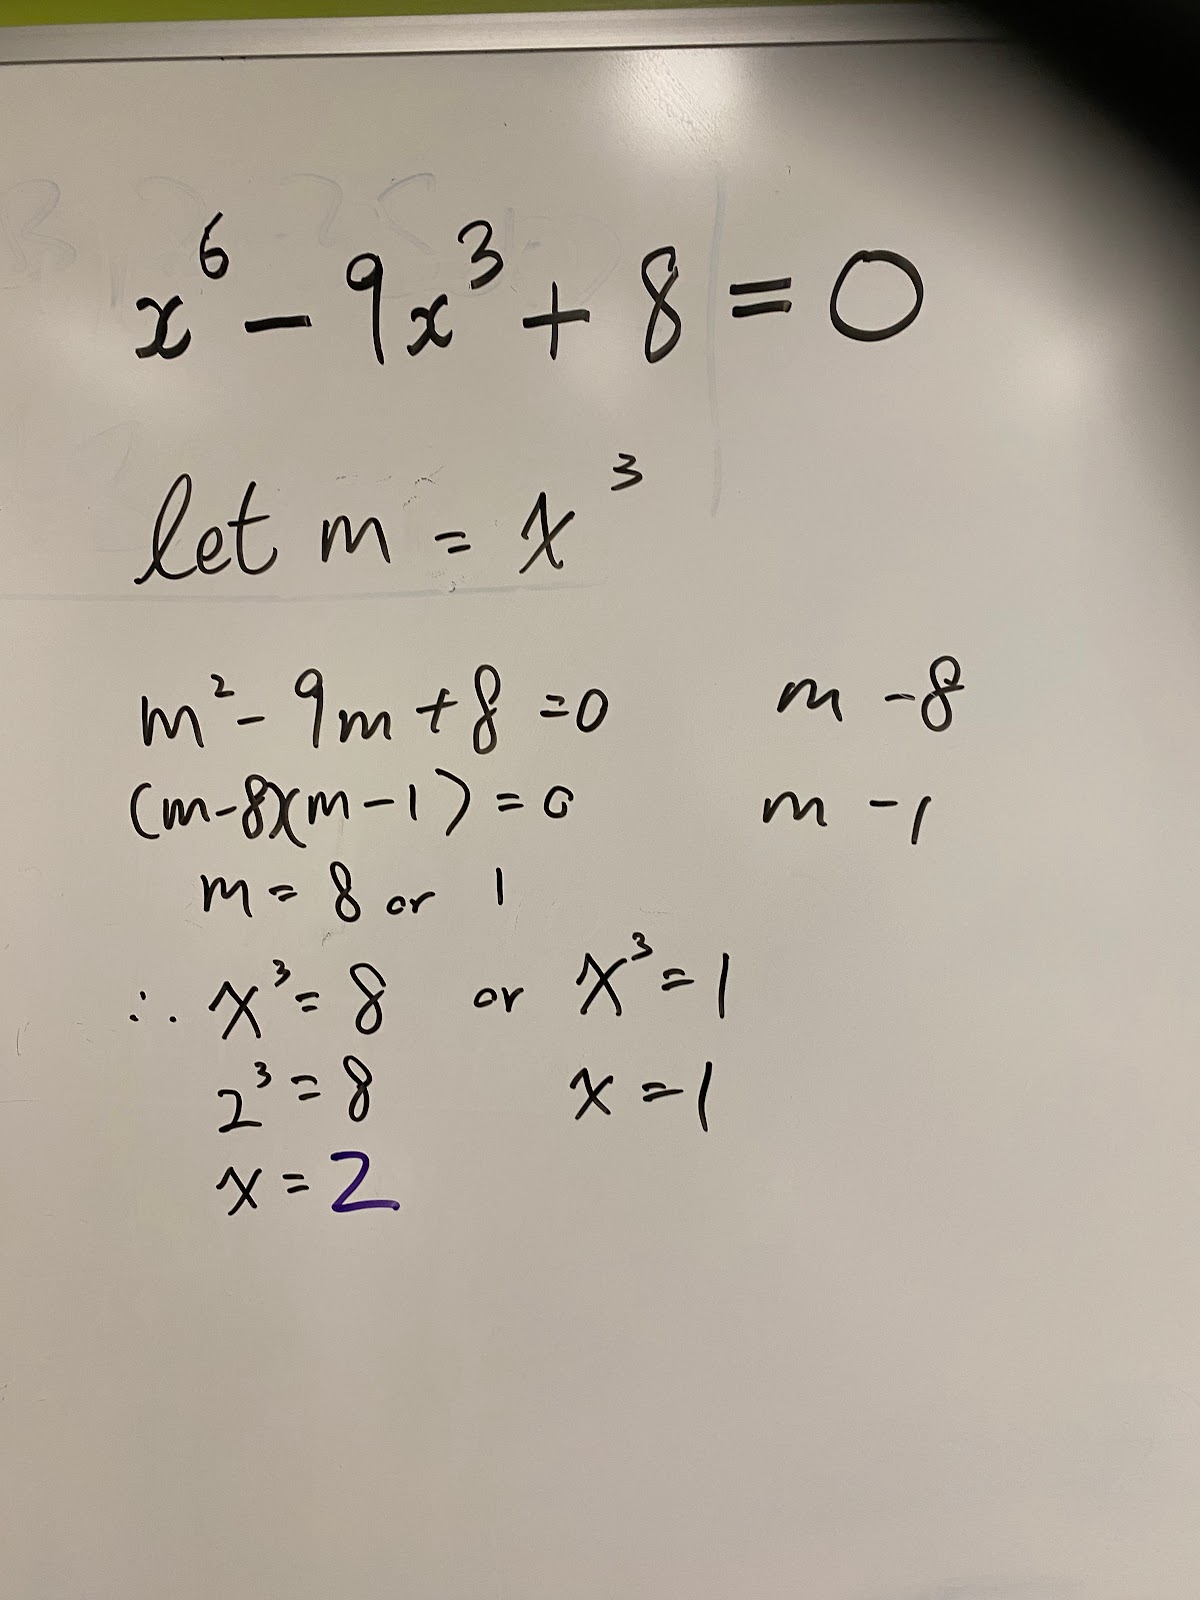 x⁶ - 9x³ + 8 = 0
let m = x³
m² - 9m + 8 = 0 m - 8
(m-8)(m-1) = 0 m - 1
m = 8 or 1
∴ x³ = 8 or x³ = 1
2³ = 8 x = 1
x = 2